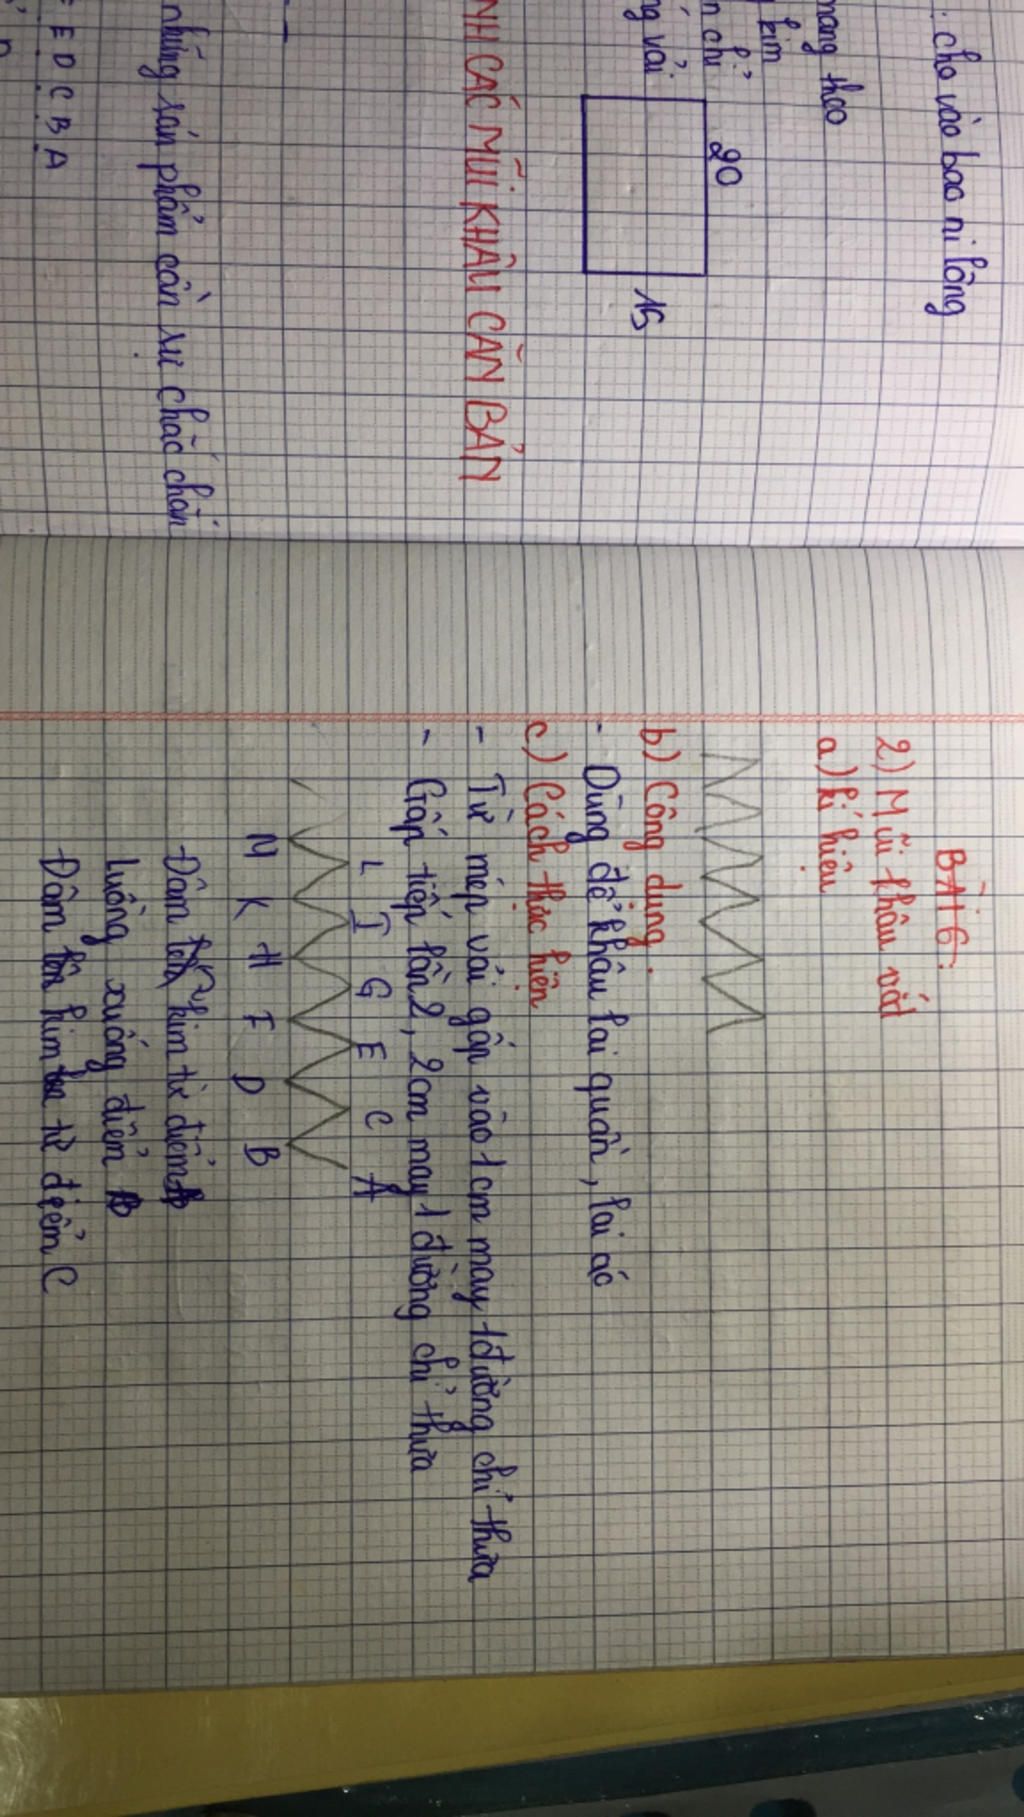 cho vào bao ni lông
mang theo
kim
chỉ
vải
20
15
NH CÁC MŨI KHÂU CĂN BẢN
những sản phẩm cần sự chắc chắn
E D C B A
BÀI 6:
2) Mũi khâu vắt
a) kí hiệu
b) Công dụng.
- Dùng để khâu lai quần, lai áo
c) Cách thực hiện
- Từ mép vải gấp vào 1cm may 1 đường chỉ thưa
- Gấp tiếp lần 2, 2cm may 1 đường chỉ thưa
L I G E C A
M K H F D B
Đâm kim từ điểm
Luồng xuống điểm
Đâm kim từ điểm C